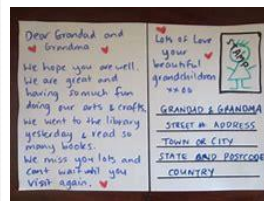 Dear Grandad and
Grandma
We hope you are well.
We are great and
having so much fun
doing our arts & crafts.
We went to the library
yesterday & read so
many books.
We miss you lots and
cant wait until you
visit again.
Lots of Love
your
beautiful
grandchildren
STAMP
GRANDAD & GRANDMA
STREET # ADDRESS
TOWN OR CITY
STATE AND POSTCODE
COUNTRY